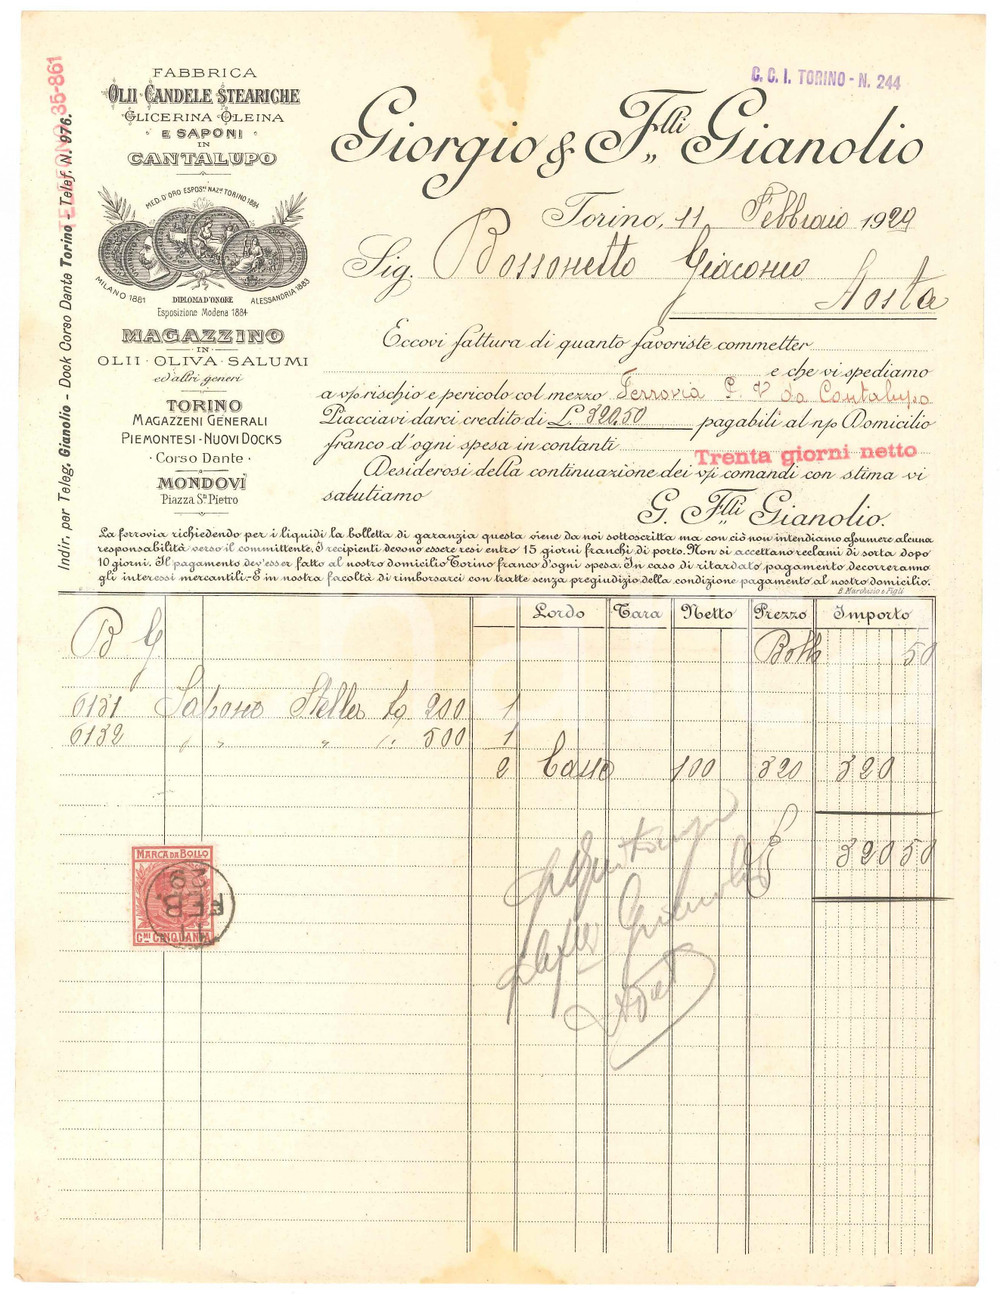 C. C. I. TORINO - N. 244
TELEFONO 35-861
Indir. per Teleg. Gianolio - Dock Corso Dante Torino - Telef. N. 976.
FABBRICA
OLII CANDELE STEARICHE
GLICERINA OLEINA
E SAPONI
IN
CANTALUPO
MED. D'ORO ESPOS.NE NAZ.LE TORINO 1884
MILANO 1881
DIPLOMA D'ONORE
ALESSANDRIA 1883
Esposizione Modena 1884
MAGAZZINO
IN
OLII · OLIVA · SALUMI
ed altri generi
TORINO
MAGAZZENI GENERALI
PIEMONTESI - NUOVI DOCKS
· Corso Dante ·
MONDOVÌ
Piazza Sn. Pietro
Giorgio & Flli Gianolio
Torino, 11 Febbraio 1929
Sig. Bossonetto Giacomo
Aosta
Eccovi fattura di quanto favoriste commetter
e che vi spediamo
a v/o rischio e pericolo col mezzo Ferrovia P. V da Cantalupo
Piacciavi darci credito di L. 320,50 pagabili al n/o Domicilio
franco d'ogni spesa in contanti
Trenta giorni netto
Desiderosi della continuazione dei v/i comandi con stima vi
salutiamo
G. Flli Gianolio.
La ferrovia richiedendo per i liquidi la bolletta di garanzia questa viene da noi sottoscritta ma con ciò non intendiamo assumere alcuna
responsabilità verso il committente. I recipienti devono essere resi entro 15 giorni franchi di porto. Non si accettano reclami di sorta dopo
10 giorni. Il pagamento dev'esser fatto al nostro domicilio Torino franco d'ogni spesa. In caso di ritardato pagamento decorreranno
gli interessi mercantili. - È in nostra facoltà di rimborsarci con tratte senza pregiudizio della condizione pagamento al nostro domicilio.
B. Marchisio e Figli
Lordo Tara Netto Prezzo Importo
B G Bollo 50
6131 Sapone Stella Kg 200 1
6132 " " " " 500 1
2 Casse 100 320 320
320 50
MARCA DA BOLLO
11 FEB. 29
CMI CINQUANTA